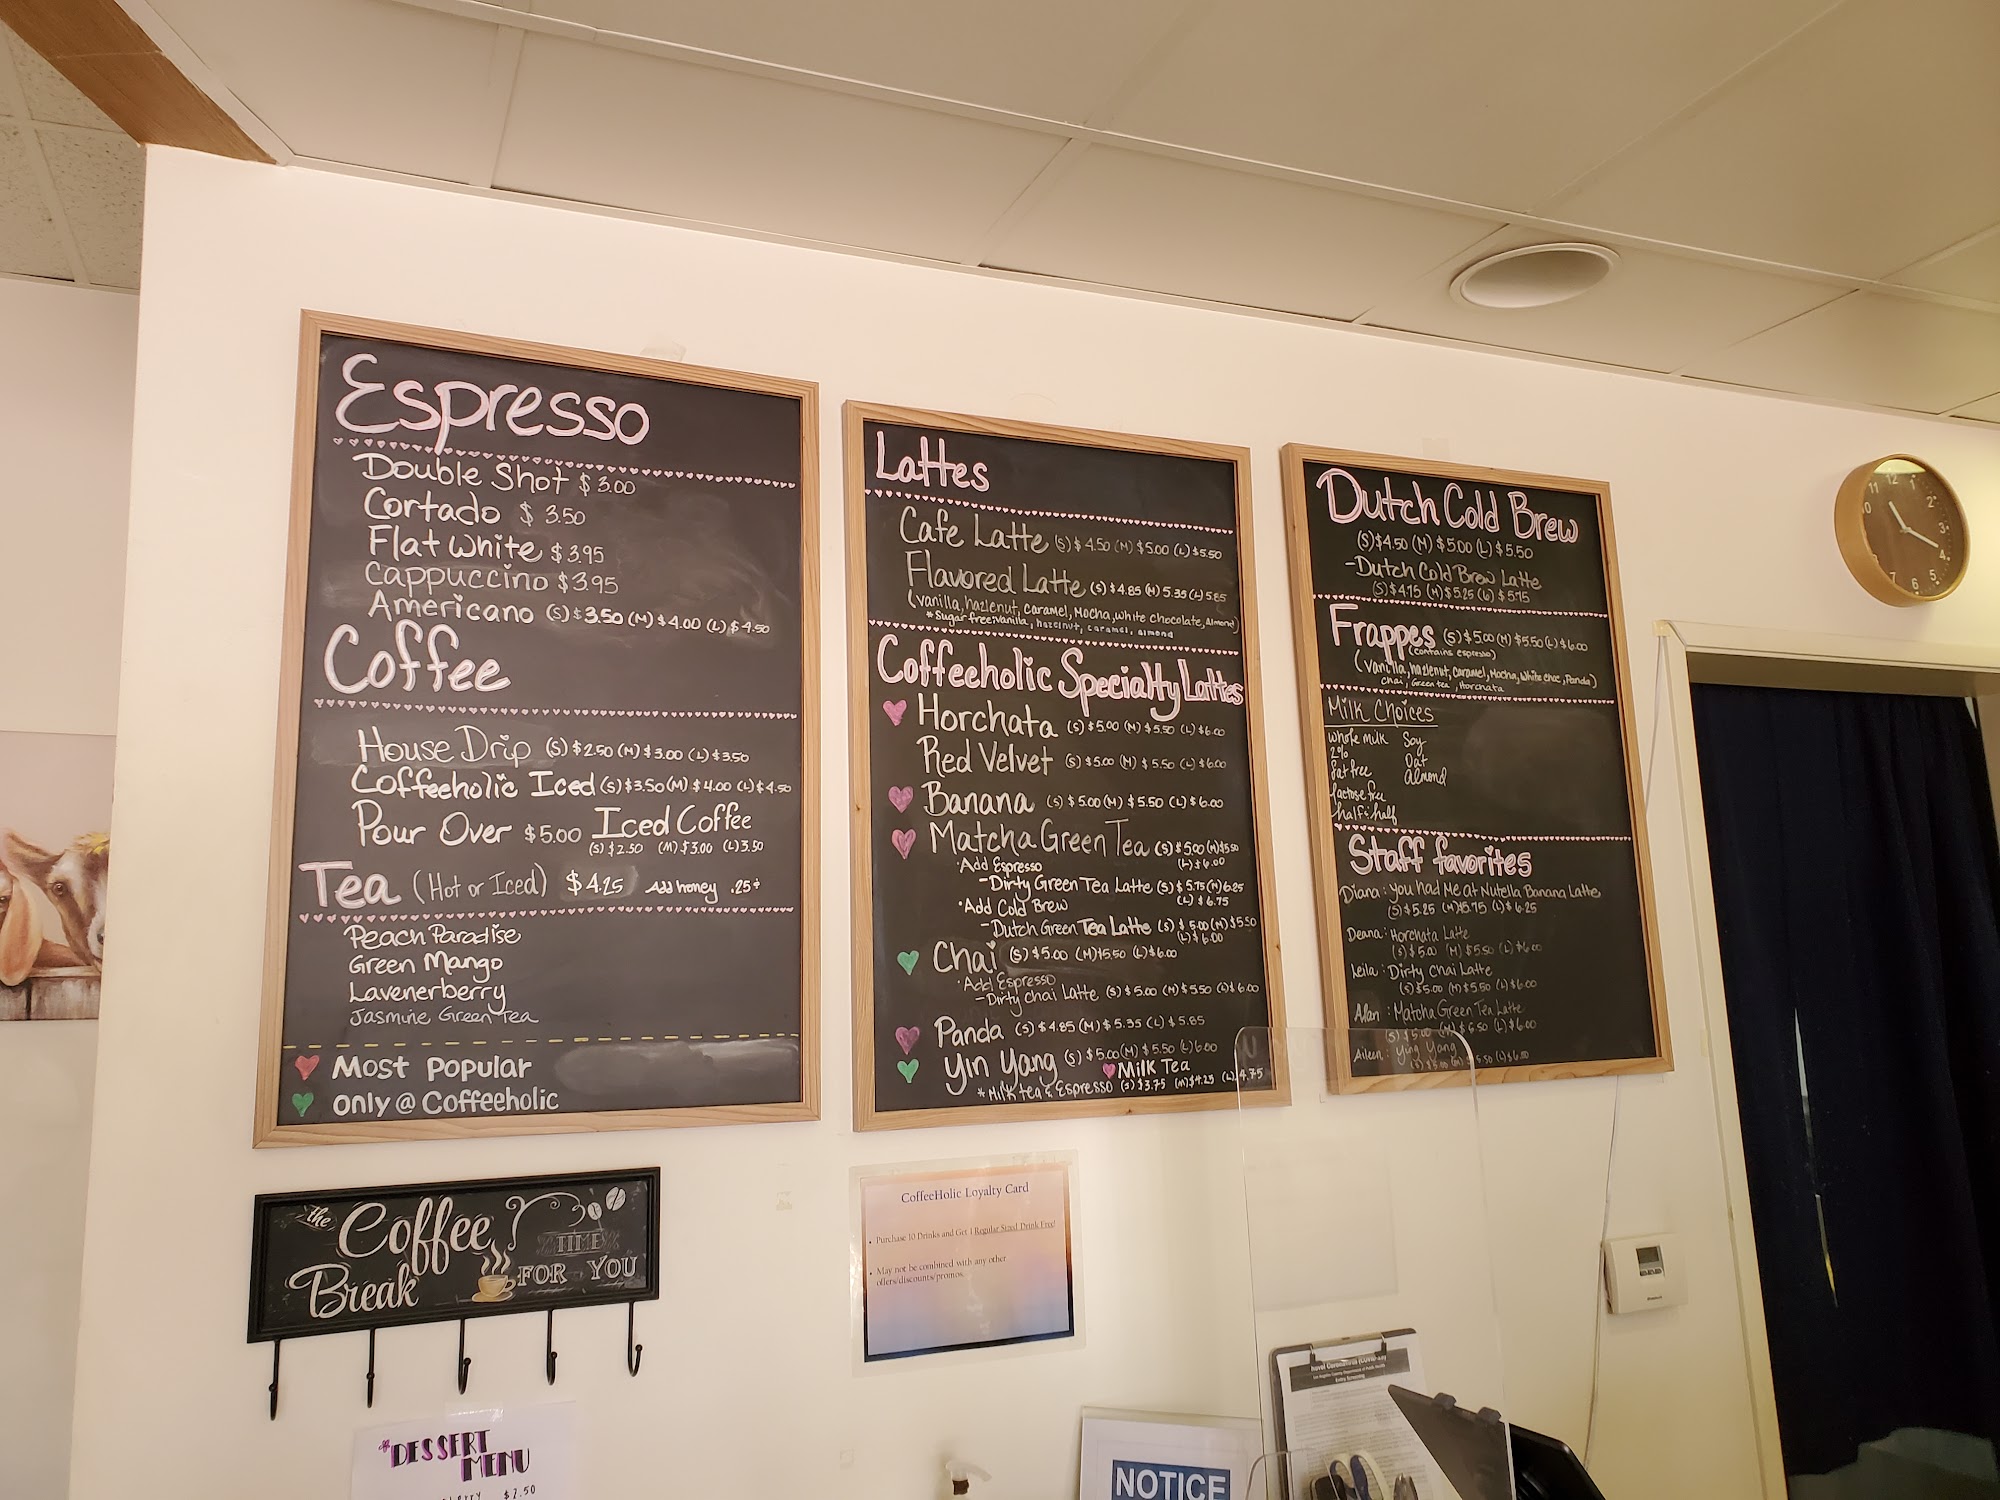 Espresso
Double Shot $3.00
Cortado $ 3.50
Flat White $3.95
Cappuccino $3.95
Americano (S) $3.50 (M) $4.00 (L) $4.50
Coffee
House Drip (S) $2.50 (M) $3.00 (L) $3.50
Coffeeholic Iced (S) $3.50 (M) $4.00 (L) $4.50
Pour Over $5.00 Iced Coffee
(S) $2.50 (M) $3.00 (L) 3.50
Tea (Hot or Iced) $4.25 Add honey .25¢
Peach Paradise
Green Mango
Lavenerberry
Jasmine Green Tea
Most Popular
only @ Coffeeholic
Lattes
Cafe Latte (S) $4.50 (M) $5.00 (L) $5.50
Flavored Latte (S) $4.85 (M) 5.35 (L) 5.85
(vanilla, hazlenut, caramel, Mocha, white chocolate, Almond)
*Sugar free: vanilla, hazelnut, caramel, almond
Coffeeholic Specialty Lattes
Horchata (S) $5.00 (M) $5.50 (L) $6.00
Red Velvet (S) $5.00 (M) $5.50 (L) $6.00
Banana (S) $5.00 (M) $5.50 (L) $6.00
Matcha Green Tea (S) $5.00 (M) $5.50
(L) $6.00
·Add Espresso
-Dirty Green Tea Latte (S) $5.75 (M) 6.25
(L) $6.75
·Add Cold Brew
-Dutch Green Tea Latte (S) $5.00 (M) $5.50
(L) $6.00
Chai (S) $5.00 (M) $5.50 (L) $6.00
·Add Espresso
-Dirty chai Latte (S) $5.00 (M) $5.50 (L) $6.00
Panda (S) $4.85 (M) $5.35 (L) $5.85
Yin Yang (S) $5.00 (M) $5.50 (L) 6.00
Milk Tea
*Milk tea & Espresso (S) $3.75 (M) $4.25 (L) 4.75
Dutch Cold Brew
(S) $4.50 (M) $5.00 (L) $5.50
-Dutch Cold Brew Latte
(S) $4.75 (M) $5.25 (L) $5.75
Frappes (S) $5.00 (M) $5.50 (L) $6.00
(contains espresso)
(Vanilla, hazlenut, caramel, Mocha, White choc, Panda)
chai, Green tea, Horchata
Milk Choices
whole milk Soy
2% Oat
fat free Almond
lactose free
half & half
Staff favorites
Diana: You Had Me At Nutella Banana Latte
(S) $5.25 (M) $5.75 (L) $6.25
Deana: Horchata Latte
(S) $5.00 (M) $5.50 (L) $6.00
Leila: Dirty Chai Latte
(S) $5.00 (M) $5.50 (L) $6.00
Alan: Matcha Green Tea Latte
(S) $5.00 (M) $5.50 (L) $6.00
Aileen: Ying Yang
(S) $5.00 (M) $5.50 (L) $6.00
the Coffee Break
TIME
FOR YOU
CoffeeHolic Loyalty Card
• Purchase 10 Drinks and Get 1 Regular Sized Drink Free!
• May not be combined with any other
offers/discounts/promos.
DESSERT
MENU
$2.50
NOTICE
Novel Coronavirus (COVID-19)
Los Angeles County Department of Public Health
Entry Screening
11 12 1
2
3
4
5
6
7